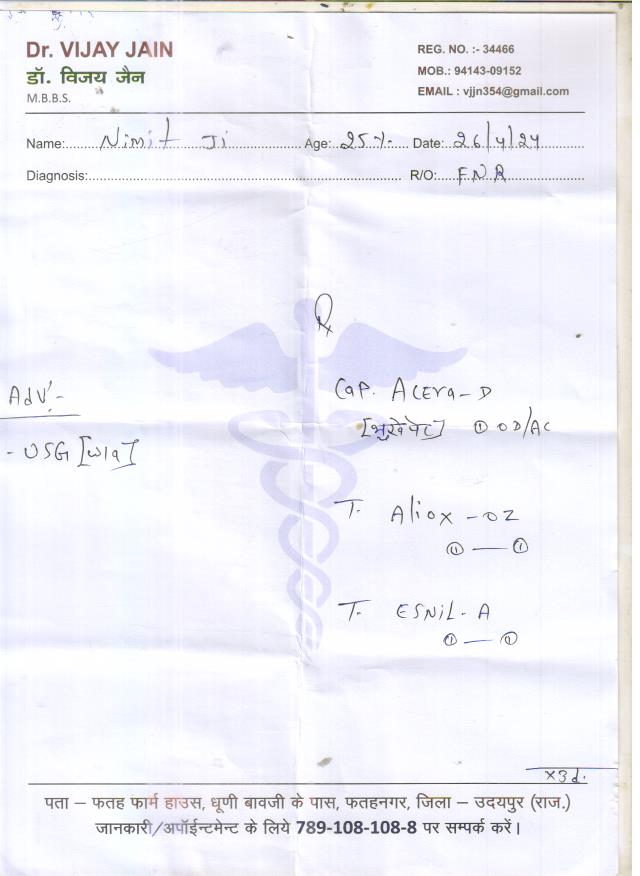 Dr. VIJAY JAIN
डॉ. विजय जैन
M.B.B.S.
REG. NO. :- 34466
MOB.: 94143-09152
EMAIL : vjjn354@gmail.com
Name: Nimit Ji Age: 25 Date: 26/4/24
Diagnosis: R/O: FNR
Rx
Adv:-
- USG [w/a]
Cap. Acera-D
[भुखे पेट] ① OD/AC
T. Aliox-OZ
① — ①
T. ESNIL-A
① — ①
x3d.
पता – फतह फार्म हाउस, धूणी बावजी के पास, फतहनगर, जिला – उदयपुर (राज.)
जानकारी/अपॉईन्टमेन्ट के लिये 789-108-108-8 पर सम्पर्क करें।